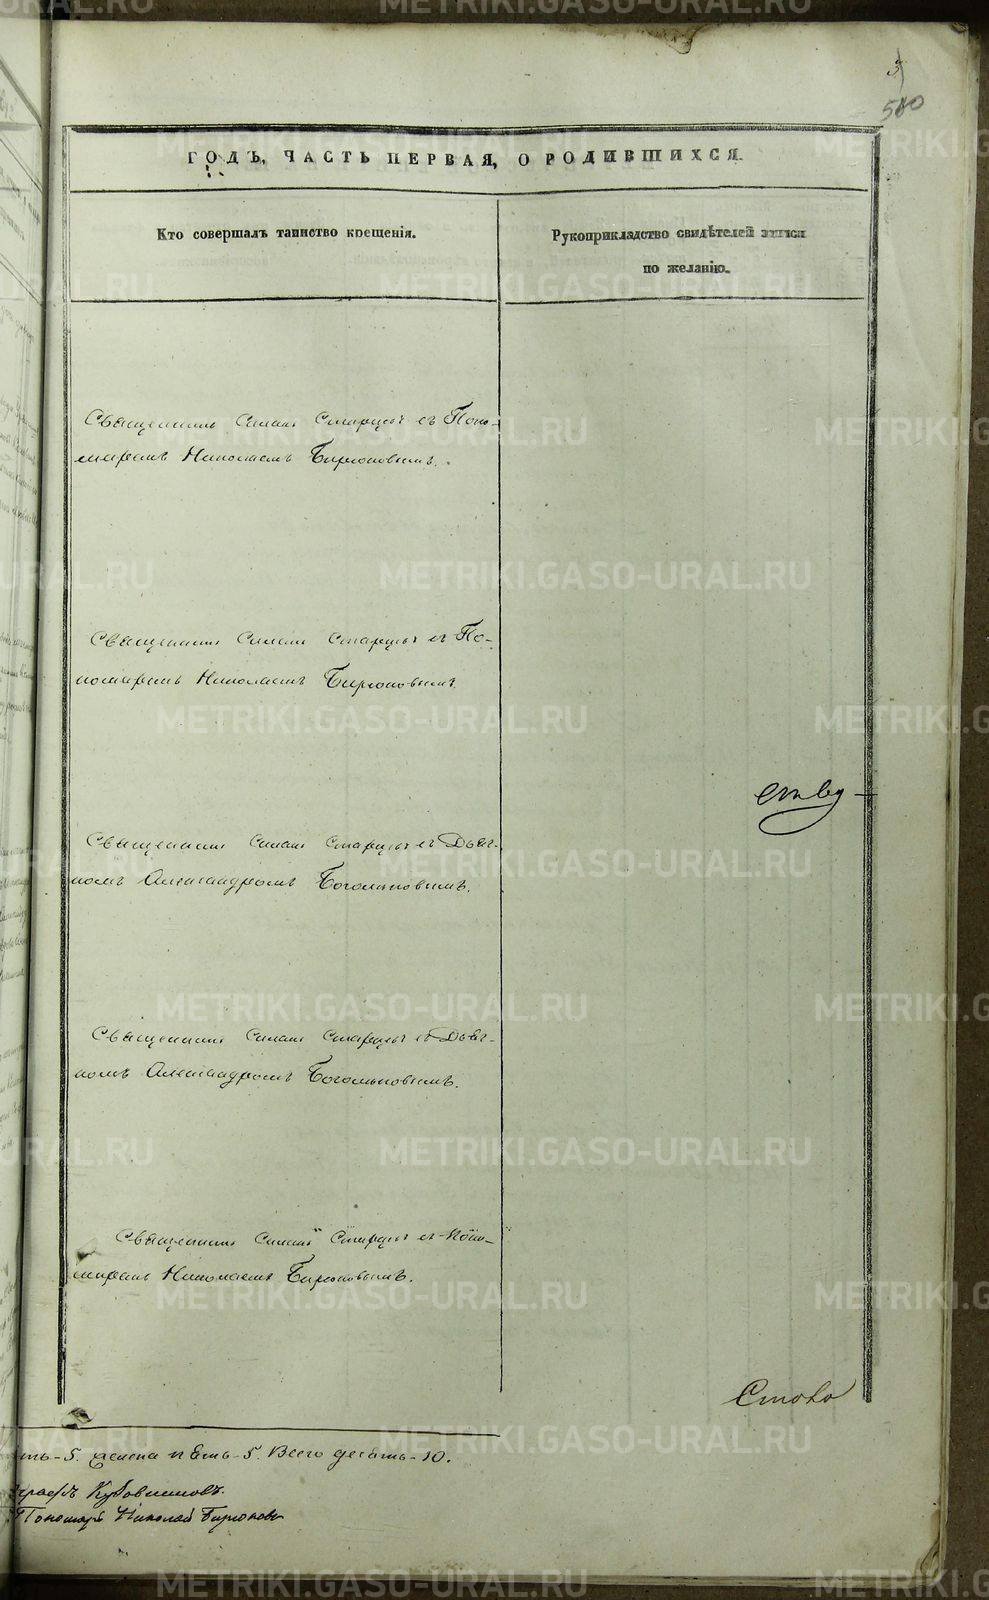 3
560
ГОДЪ, ЧАСТЬ ПЕРВАЯ, О РОДИВШИХСЯ.
Кто совершалъ таинство крещенія.
Рукоприкладство свидѣтелей записи
по желанію.
Священникъ Симеонъ Старцевъ съ Поно-
маремъ Николаемъ Бирюковымъ.
Священникъ Симеонъ Старцевъ съ По-
номаремъ Николаемъ Бирюковымъ.
Священникъ Симеонъ Старцевъ съ Дьяч-
комъ Александромъ Богомоловымъ.
Священникъ Симеонъ Старцевъ съ Дьяч-
комъ Александромъ Богомоловымъ.
Священникъ Симеонъ Старцевъ съ Поно-
маремъ Николаемъ Бирюковымъ.
5. женска пять-5. Всего десять-10.
Пономарь Николай Бирюковъ
METRIKI.GASO-URAL.RU